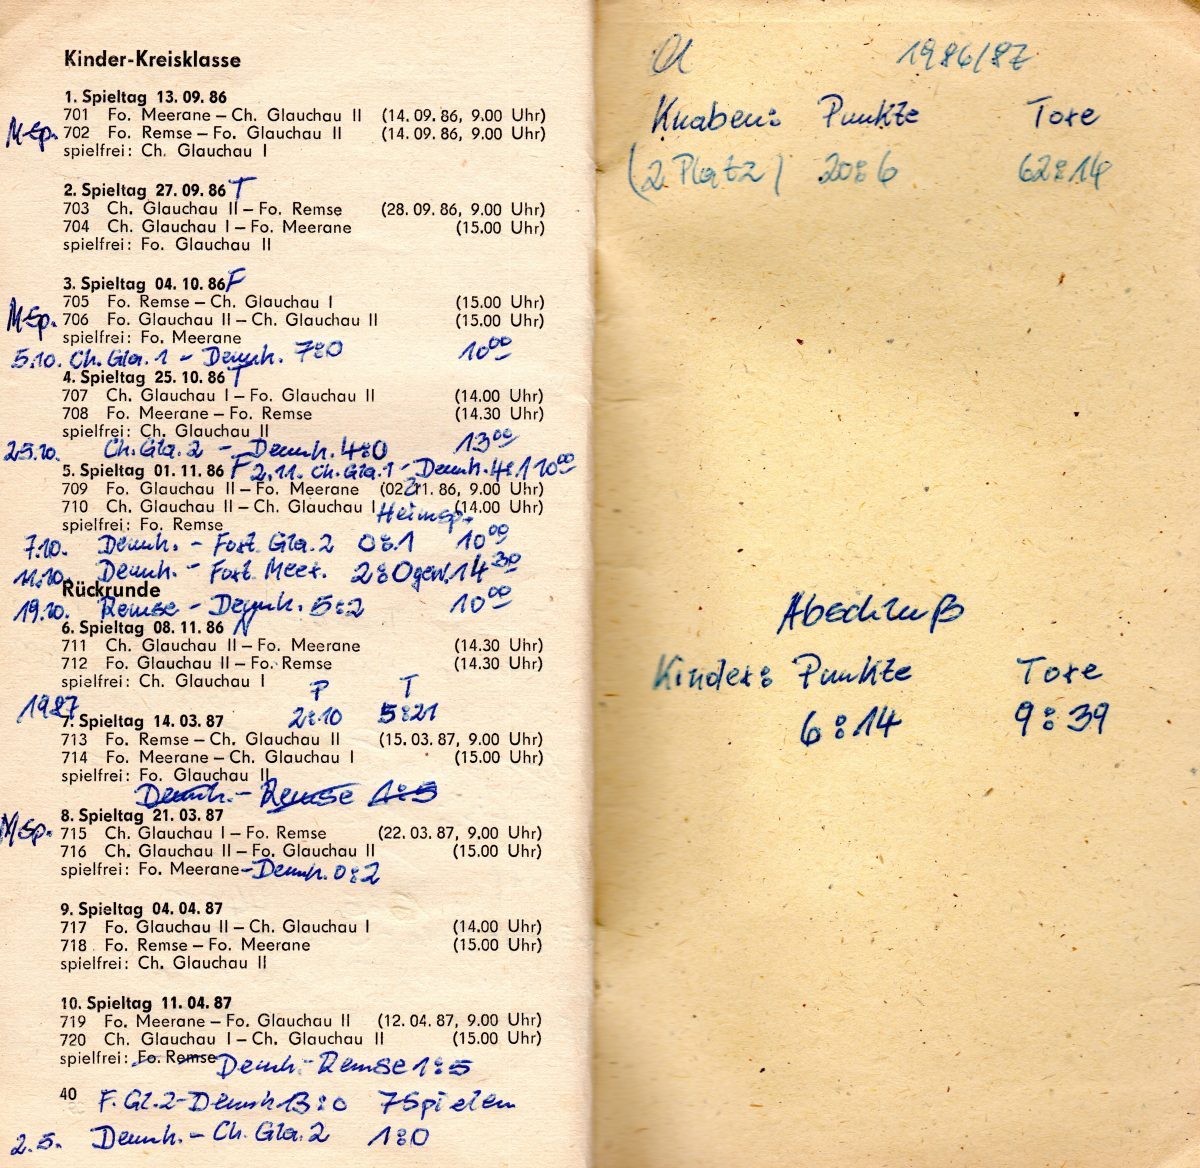 Kinder-Kreisklasse
1. Spieltag 13. 09. 86
701 Fo. Meerane – Ch. Glauchau II (14. 09. 86, 9.00 Uhr)
M-Sp. 702 Fo. Remse – Fo. Glauchau II (14. 09. 86, 9.00 Uhr)
spielfrei: Ch. Glauchau I
2. Spieltag 27. 09. 86 T
703 Ch. Glauchau II – Fo. Remse (28. 09. 86, 9.00 Uhr)
704 Ch. Glauchau I – Fo. Meerane (15.00 Uhr)
spielfrei: Fo. Glauchau II
3. Spieltag 04. 10. 86 F
705 Fo. Remse – Ch. Glauchau I (15.00 Uhr)
M-Sp. 706 Fo. Glauchau II – Ch. Glauchau II (15.00 Uhr)
spielfrei: Fo. Meerane
5.10. Ch. Gla. 1 - Dennh. 7:0 10⁰⁰
4. Spieltag 25. 10. 86 T
707 Ch. Glauchau I – Fo. Glauchau II (14.00 Uhr)
708 Fo. Meerane – Fo. Remse (14.30 Uhr)
spielfrei: Ch. Glauchau II
25.10. Ch. Gla. 2 - Dennh. 4:0 13⁰⁰
5. Spieltag 01. 11. 86 F 2.11. Ch. Gla. 1 - Dennh. 4:1 10⁰⁰
709 Fo. Glauchau II – Fo. Meerane (02. 11. 86, 9.00 Uhr)
710 Ch. Glauchau II – Ch. Glauchau I (14.00 Uhr)
spielfrei: Fo. Remse Heimsp.
7.10. Dennh. - Fort. Gla. 2 0:1 10⁰⁰
11.10. Dennh. - Fort. Meer. 2:0 gew. 14³⁰
Rückrunde
19.10. Remse - Dennh. 5:2 10⁰⁰
6. Spieltag 08. 11. 86 N
711 Ch. Glauchau II – Fo. Meerane (14.30 Uhr)
712 Fo. Glauchau II – Fo. Remse (14.30 Uhr)
spielfrei: Ch. Glauchau I P T
1987 2:10 5:21
7. Spieltag 14. 03. 87
713 Fo. Remse – Ch. Glauchau II (15. 03. 87, 9.00 Uhr)
714 Fo. Meerane – Ch. Glauchau I (15.00 Uhr)
spielfrei: Fo. Glauchau II
Dennh. - Remse 1:5
8. Spieltag 21. 03. 87
M-Sp. 715 Ch. Glauchau I – Fo. Remse (22. 03. 87, 9.00 Uhr)
716 Ch. Glauchau II – Fo. Glauchau II (15.00 Uhr)
spielfrei: Fo. Meerane - Dennh. 0:2
9. Spieltag 04. 04. 87
717 Fo. Glauchau II – Ch. Glauchau I (14.00 Uhr)
718 Fo. Remse – Fo. Meerane (15.00 Uhr)
spielfrei: Ch. Glauchau II
10. Spieltag 11. 04. 87
719 Fo. Meerane – Fo. Glauchau II (12. 04. 87, 9.00 Uhr)
720 Ch. Glauchau I – Ch. Glauchau II (15.00 Uhr)
spielfrei: Fo. Remse Dennh. - Remse 1:5
40 F. Gl. 2 - Dennh 13:0 7 Spielen
2.5. Dennh. - Ch. Gla. 2 1:0
1986/87
Knaben: Punkte Tore
(2. Platz) 20:6 62:14
Abschluß
Kinder: Punkte Tore
6:14 9:39